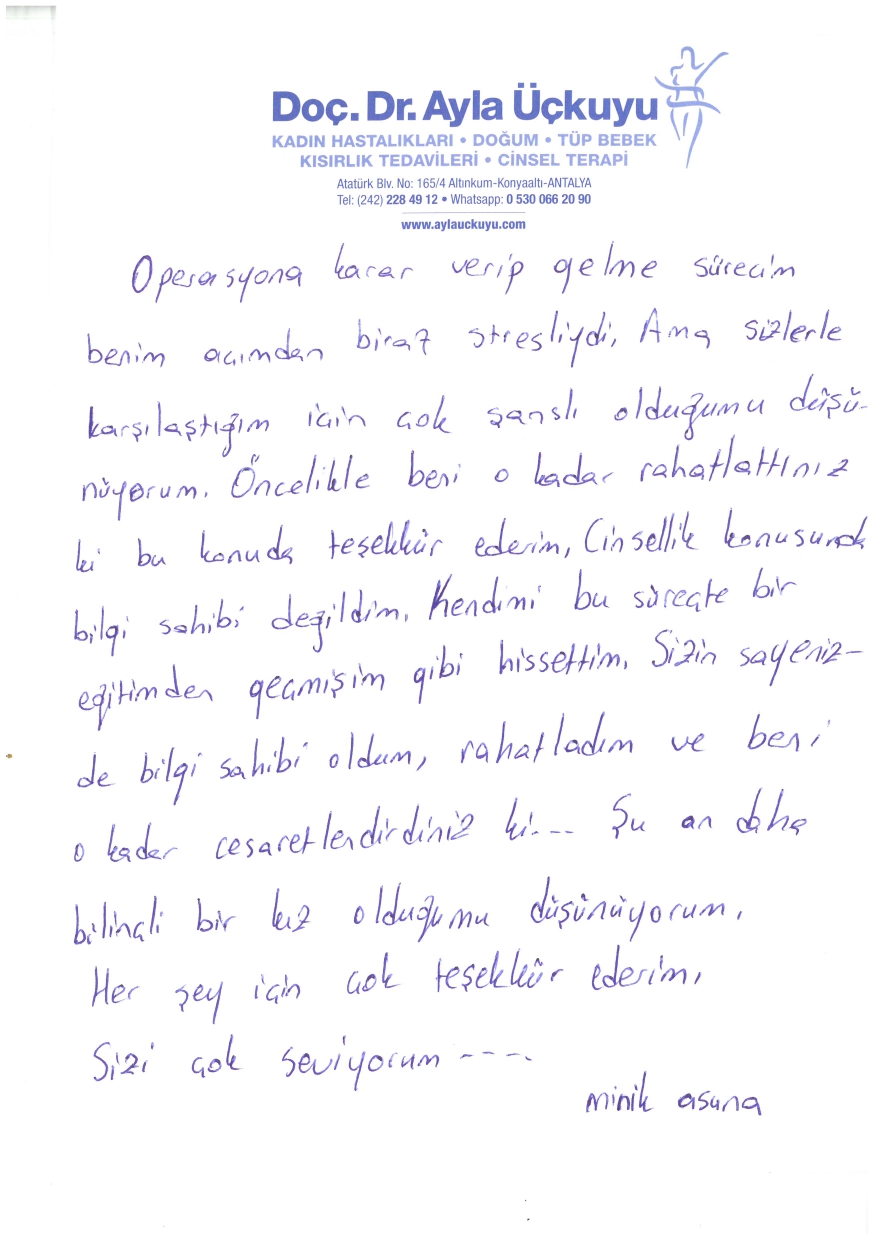 Doç. Dr. Ayla Üçkuyu
KADIN HASTALIKLARI • DOĞUM • TÜP BEBEK
KISIRLIK TEDAVİLERİ • CİNSEL TERAPİ
Atatürk Blv. No: 165/4 Altınkum-Konyaaltı-ANTALYA
Tel: (242) 228 49 12 • Whatsapp: 0 530 066 20 90
www.aylauckuyu.com
Operasyona karar verip gelme sürecim
benim açımdan biraz stresliydi. Ama sizlerle
karşılaştığım için çok şanslı olduğumu düşü-
nüyorum. Öncelikle beni o kadar rahatlattınız
ki bu konuda teşekkür ederim. Cinsellik konusunda
bilgi sahibi değildim. Kendimi bu süreçte bir
eğitimden geçmişim gibi hissettim. Sizin sayeniz-
de bilgi sahibi oldum, rahatladım ve beni
o kadar cesaretlendirdiniz ki.... Şu an daha
bilinçli bir kız olduğumu düşünüyorum.
Her şey için çok teşekkür ederim.
Sizi çok seviyorum ----.
minik asuna